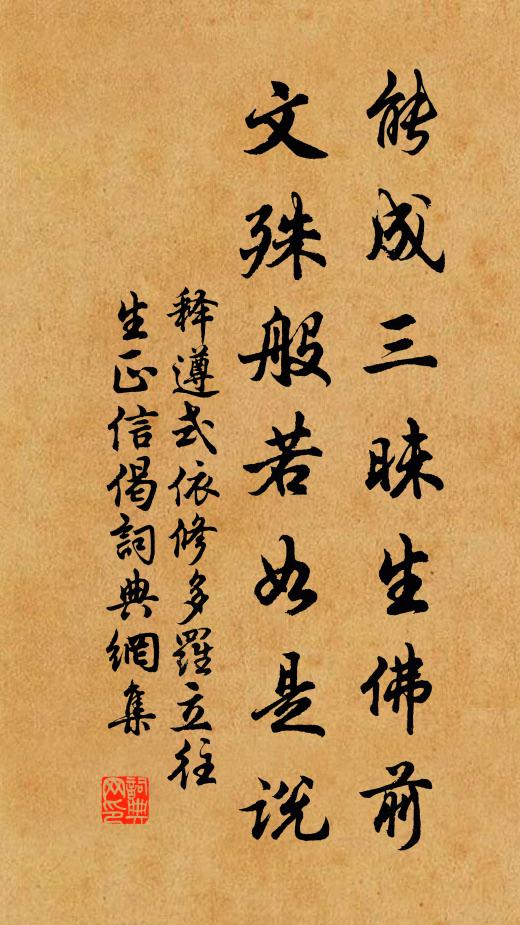 能成三昧生佛前
文殊般若如是説
释遵式依修多羅立往
生正信偈詞典網集
詞典
网印